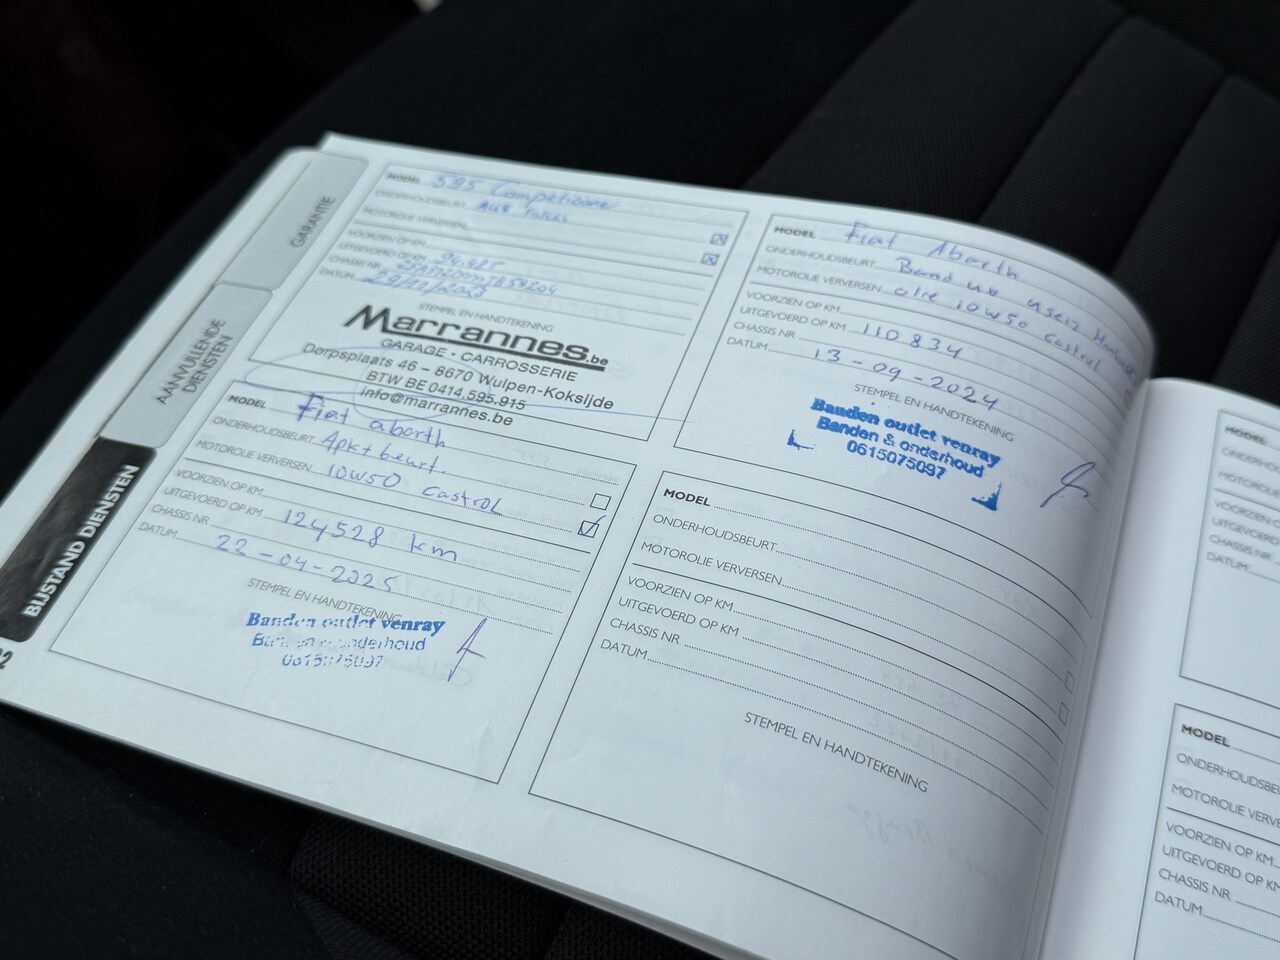 GARANTIE
AANVULLENDE
DIENSTEN
BIJSTAND DIENSTEN
MODEL 595 Competizione
ONDERHOUDSBEURT
MOTOROLIE VERVERSEN
VOORZIEN OP KM
UITGEVOERD OP KM 94.485
CHASSIS NR.
DATUM 29/12/2023
STEMPEL EN HANDTEKENING
Marrannes.be
GARAGE - CARROSSERIE
Dorpsplaats 46 - 8670 Wulpen-Koksijde
BTW BE 0414.595.915
info@marrannes.be
MODEL Fiat Abarth
ONDERHOUDSBEURT Band
MOTOROLIE VERVERSEN olie 10w50 castrol
VOORZIEN OP KM
UITGEVOERD OP KM 110834
CHASSIS NR
DATUM 13-09-2024
STEMPEL EN HANDTEKENING
Banden outlet venray
Banden & onderhoud
0615075097
MODEL Fiat abarth
ONDERHOUDSBEURT Apk + beurt.
MOTOROLIE VERVERSEN 10W50 castrol
VOORZIEN OP KM
UITGEVOERD OP KM 124528 km
CHASSIS NR
DATUM 22-04-2025
STEMPEL EN HANDTEKENING
Banden outlet venray
Banden & onderhoud
0615075097
MODEL
ONDERHOUDSBEURT
MOTOROLIE VERVERSEN
VOORZIEN OP KM
UITGEVOERD OP KM
CHASSIS NR
DATUM
STEMPEL EN HANDTEKENING
MODEL
ONDERHOUDSB
MOTOROLIE
VOORZIEN OP
UITGEVOERD
CHASSIS NR
DATUM
MODEL
ONDERHOUDSBE
MOTOROLIE VERVE
VOORZIEN OP KM
UITGEVOERD OP KM
CHASSIS NR
DATUM